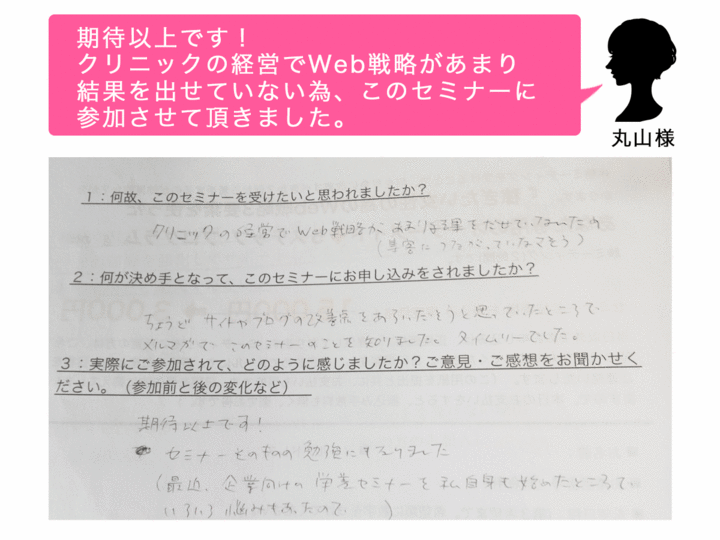 期待以上です！
クリニックの経営でWeb戦略があまり
結果を出せていない為、このセミナーに
参加させて頂きました。
丸山様
１：何故、このセミナーを受けたいと思われましたか？
クリニックの経営で Web戦略が あまり結果をだせていないため
２：何が決め手となって、このセミナーにお申し込みをされましたか？
ちょうど サイトやブログの改善点をあらいだそうと思っていたところで
メルマガで このセミナーのことを知りました。 タイムリーでした。
３：実際にご参加されて、どのように感じましたか？ご意見・ご感想をお聞かせく
ださい。（参加前と後の変化など）
期待以上です！
セミナーそのものの 勉強にもなりました
（最近、企業向けの 栄養セミナーを 私自身も 始めたところで
いろいろ 悩みもあったので ）